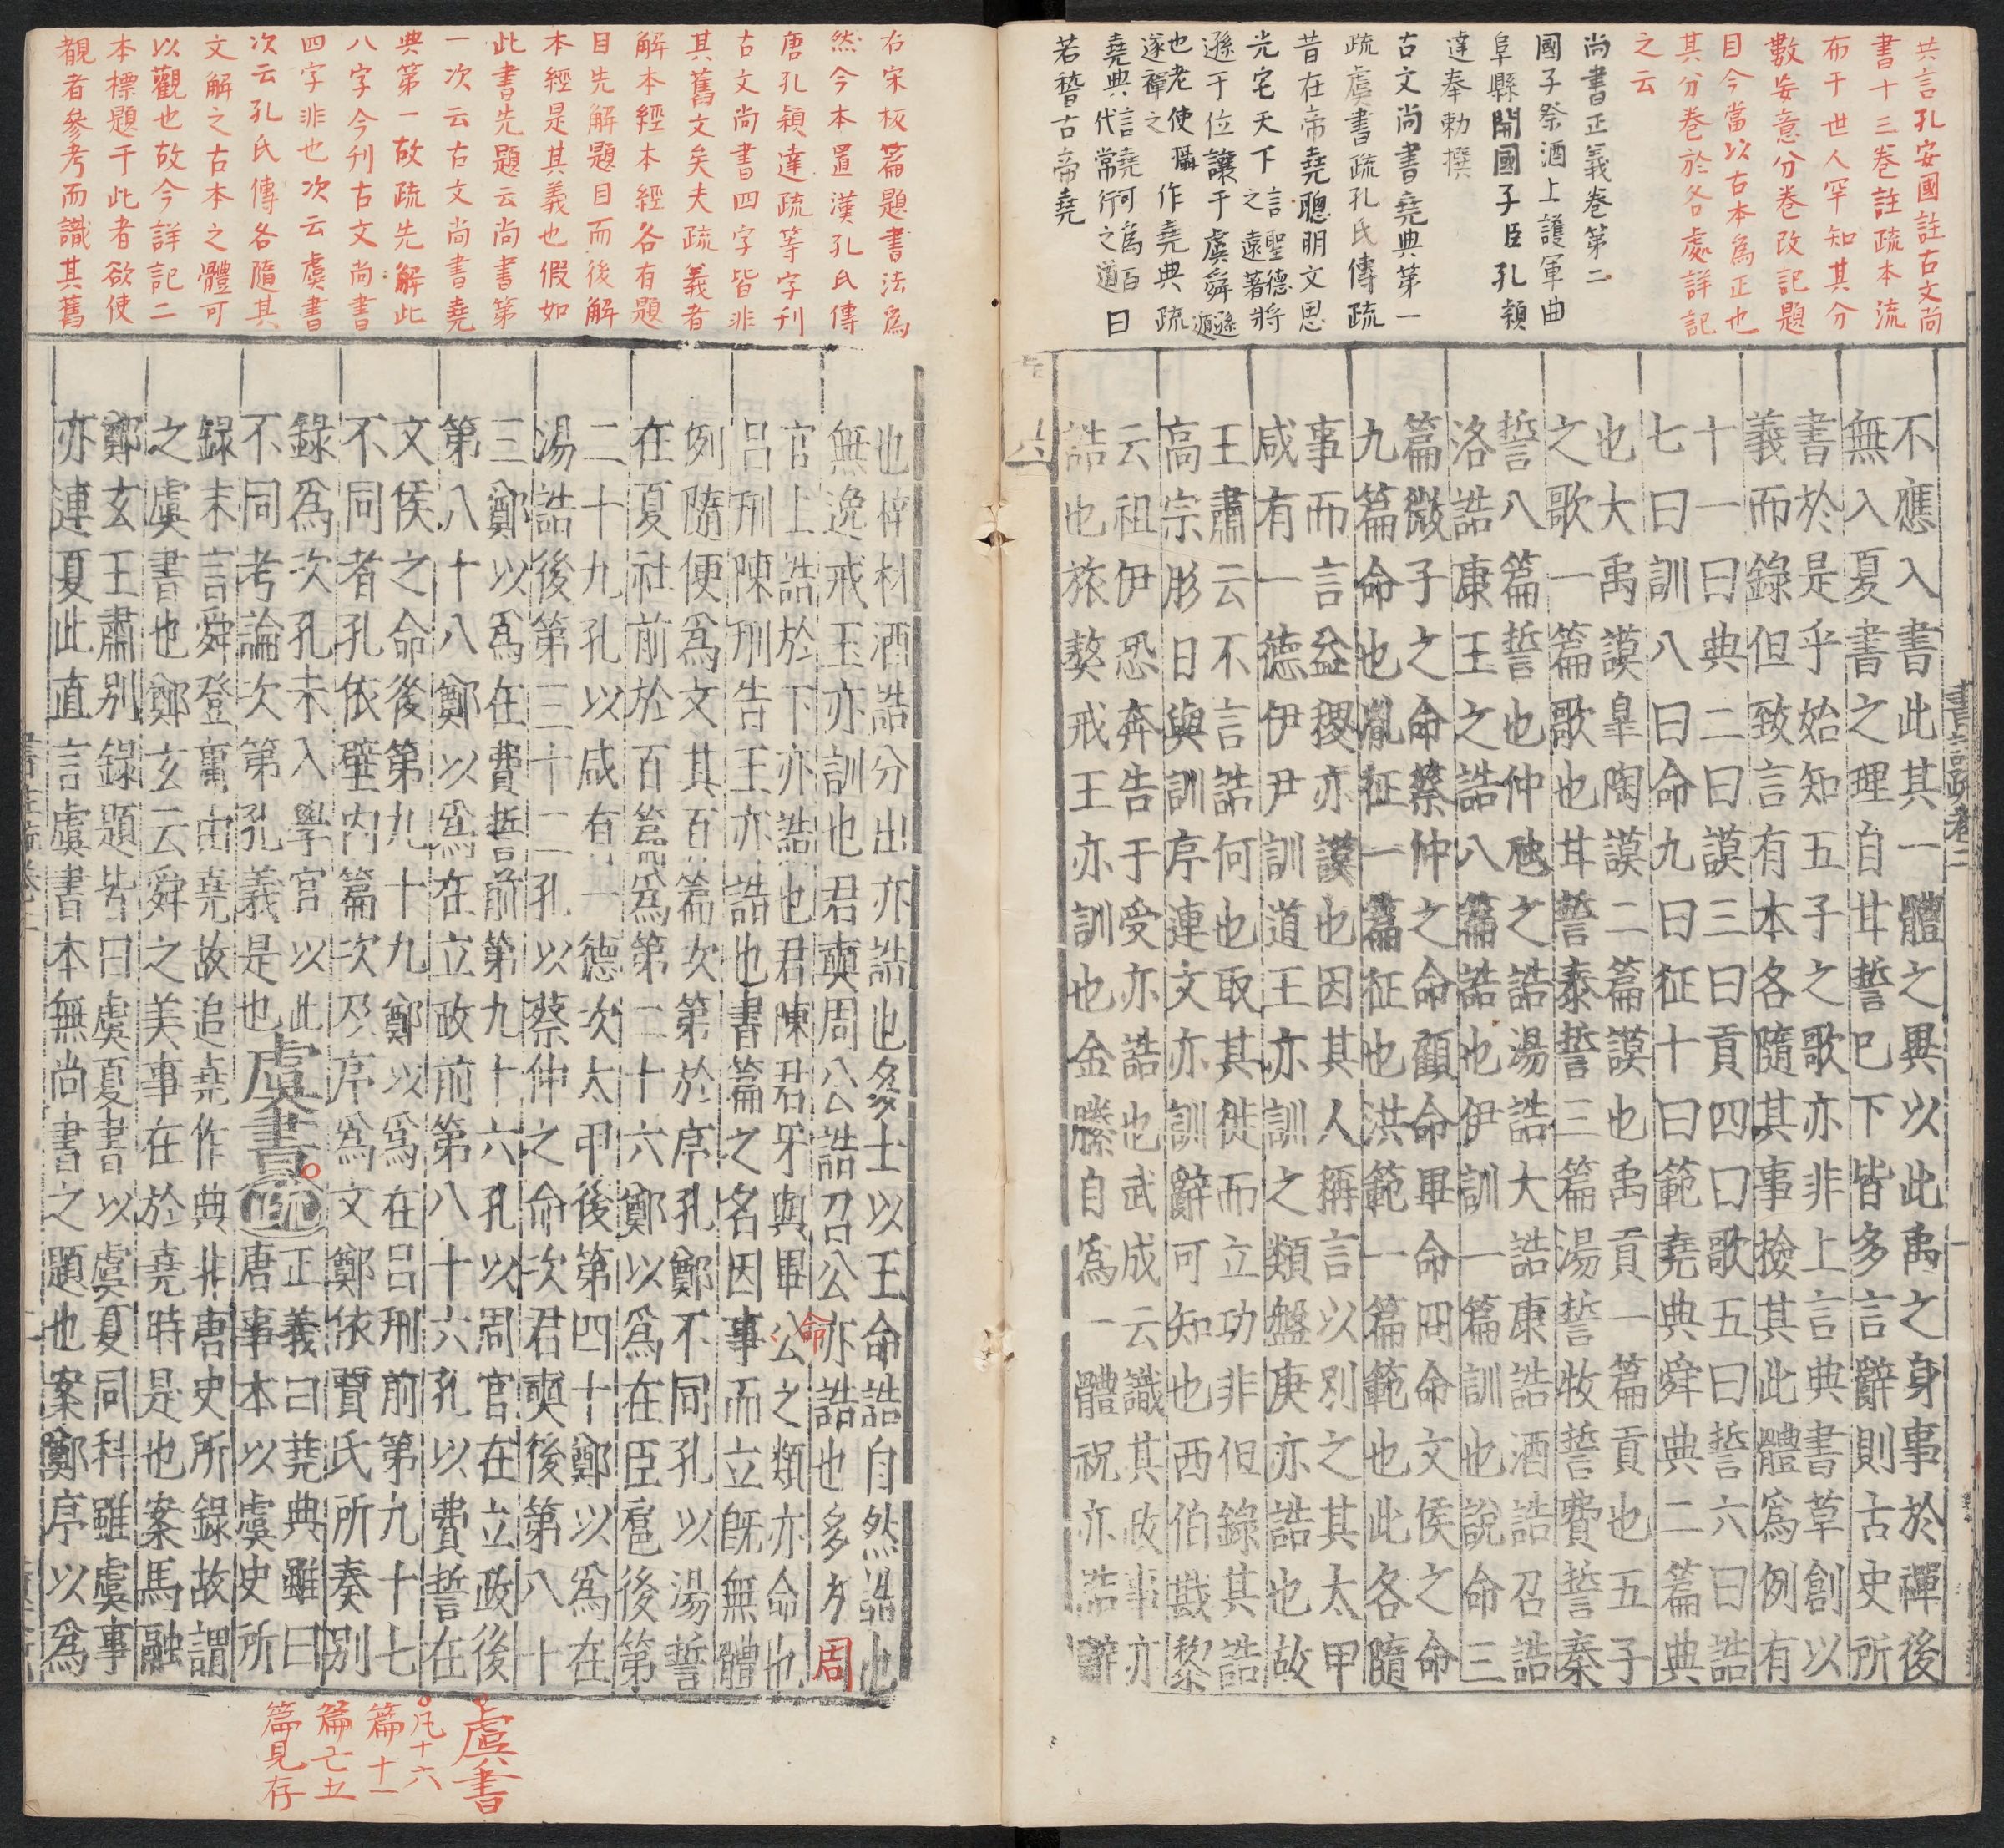 共言孔安國註古文尚
書十三卷註疏本流
布于世人罕知其分
數妄意分卷改記題
目今當以古本為正也
其分卷於各處詳記
之云
尚書正義卷第二
國子祭酒上護軍曲
阜縣開國子臣孔穎
達奉勅撰
古文尚書堯典第一
疏虞書疏孔氏傳疏
昔在帝堯聰明文思
光宅天下言聖德之遠著將
遜于位讓于虞舜遜遁
也老使攝遂禪之作堯典疏
堯典言堯可為百代常行之道曰
若稽古帝堯
不應入書此其一體之異以此禹之身事於禪後
無入夏書之理自甘誓已下皆多言辭則古史所
書於是乎始知五子之歌亦非上言典書草創以
義而錄但致言有本各隨其事撿其此體為例有
十一曰典二曰謨三曰貢四曰歌五曰誓六曰誥
七曰訓八曰命九曰征十曰範堯典舜典二篇典
也大禹謨皐陶謨二篇謨也禹貢一篇貢也五子
之歌一篇歌也甘誓泰誓三篇湯誓牧誓費誓秦
誓八篇誓也仲虺之誥湯誥大誥康誥酒誥召誥
洛誥康王之誥八篇誥也伊訓一篇訓也說命三
篇微子之命蔡仲之命顧命畢命冏命文侯之命
九篇命也胤征一篇征也洪範一篇範也此各隨
事而言益稷亦謨也因其人稱言以別之其太甲
咸有一德伊尹訓道王亦訓之類盤庚亦誥也故
王肅云不言誥何也取其徙而立功非但錄其誥
高宗肜日與訓序連文亦訓辭可知也西伯戡黎
云祖伊恐奔告于受亦誥也武成云識其政事亦
誥也旅獒戒王亦訓也金縢自為一體祝亦誥辭
右宋板篇題書法為
然今本置漢孔氏傳
唐孔穎達疏等字刊
古文尚書四字皆非
其舊文矣夫疏義者
解本經本經各有題
目先解題目而後解
本經是其義也假如
此書先題云尚書第
一次云古文尚書堯
典第一故疏先解此
八字今刊古文尚書
四字非也次云虞書
次云孔氏傳各隨其
文解之古本之體可
以觀也故今詳記二
本標題于此者欲使
覩者參考而識其舊
也梓材酒誥分出亦誥也多士以王命誥自然誥也
無逸戒王亦訓也君奭周公誥召公亦誥也多方周
官上誥於下亦誥也君陳君牙與畢公之類亦命也
命
呂刑陳刑告王亦誥也書篇之名因事而立既無體
例隨便為文其百篇次第於序孔鄭不同孔以湯誓
在夏社前於百篇為第二十六鄭以為在臣扈後第
二十九孔以咸有一德次太甲後第四十鄭以為在
湯誥後第三十二孔以蔡仲之命次君奭後第八十
三鄭以為在費誓前第九十六孔以周官在立政後
第八十八鄭以為在立政前第八十六孔以費誓在
文侯之命後第九十九鄭以為在呂刑前第九十七
不同者孔依壁內篇次及序為文鄭依賈氏所奏別
錄為次孔未入學官以此
不同考論次第孔義是也
虞書疏
正義曰堯典雖曰
唐事本以虞史所
錄末言舜登庸由堯故追堯作典非唐史所錄故謂
之虞書也鄭玄云舜之美事在於堯時是也案馬融
鄭玄王肅別錄題皆曰虞夏書以虞夏同科雖虞事
亦連夏此直言虞書本無尚書之題也案鄭序以為
虞書
凡十六
篇十一
篇亡五
篇見存